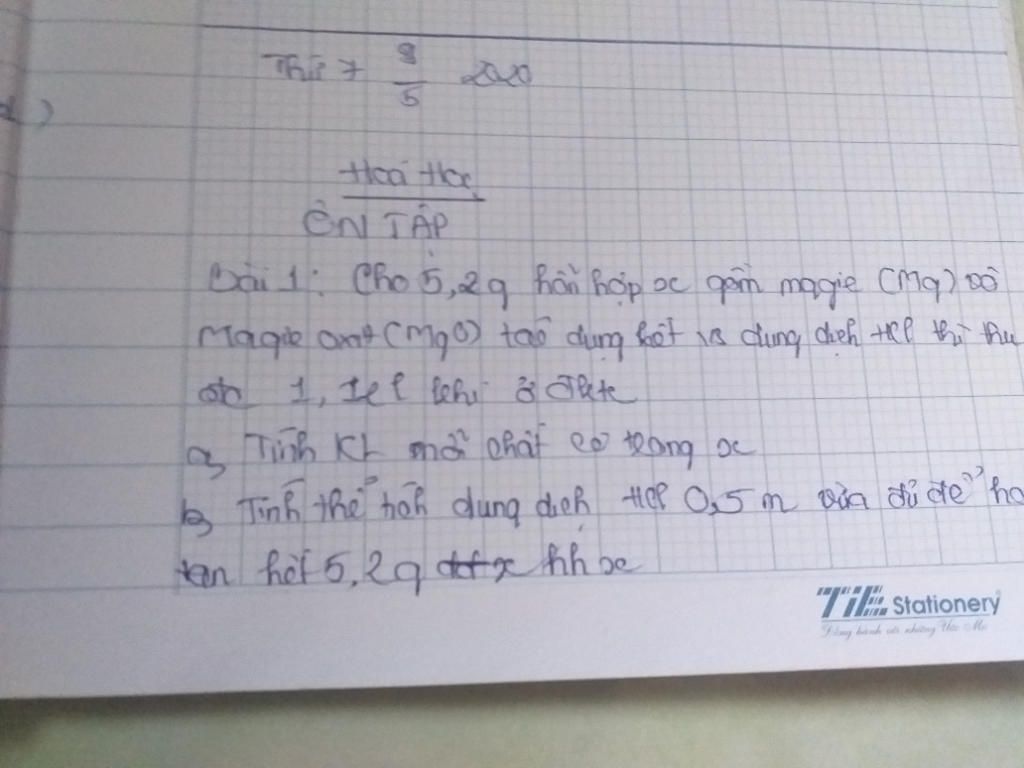 Thứ 7 9/5 2020
Hoá Học
ÔN TẬP
Bài 1: Cho 5,2g hỗn hợp x gồm magie (Mg) và
Magie oxit (MgO) tác dụng hết vs dung dịch HCl thì thu
đc 1,12l khí ở đktc
a, Tính KL mỗi chất có trong x
b, Tính thể tích dung dịch HCl 0,5m vừa đủ để ho
tan hết 5,2g hh x
TiE Stationery
Đồng hành với những Ước Mơ